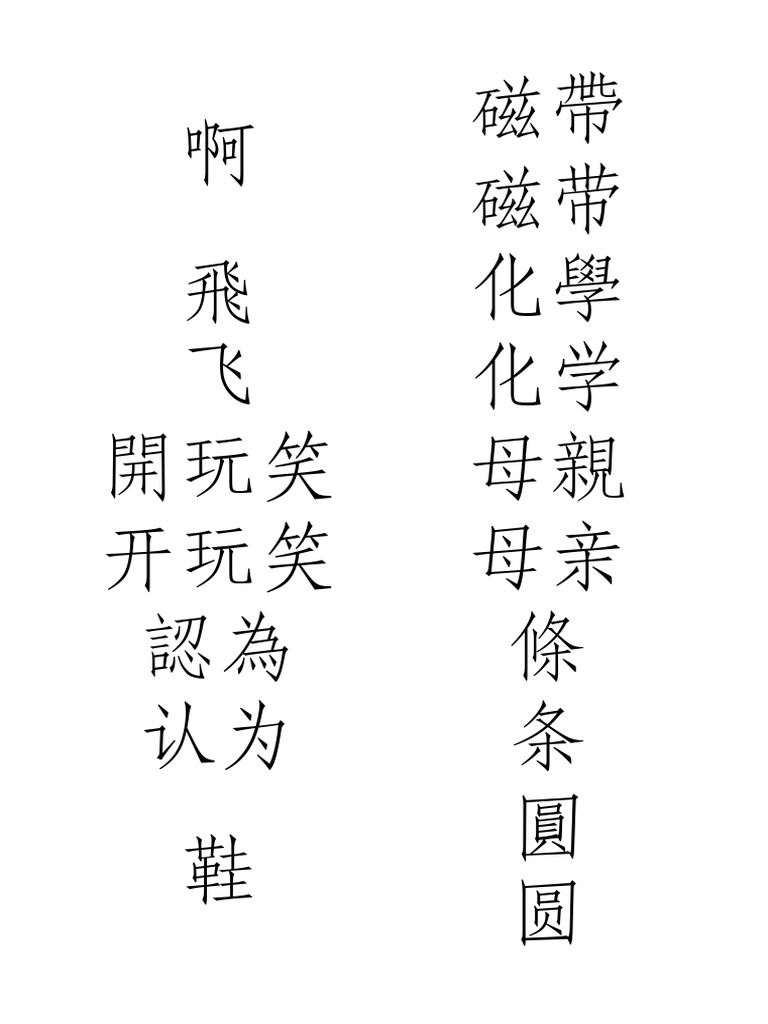 啊
飛
飞
開玩笑
开玩笑
認為
认为
鞋
磁帶
磁带
化學
化学
母親
母亲
條
条
圓
圆